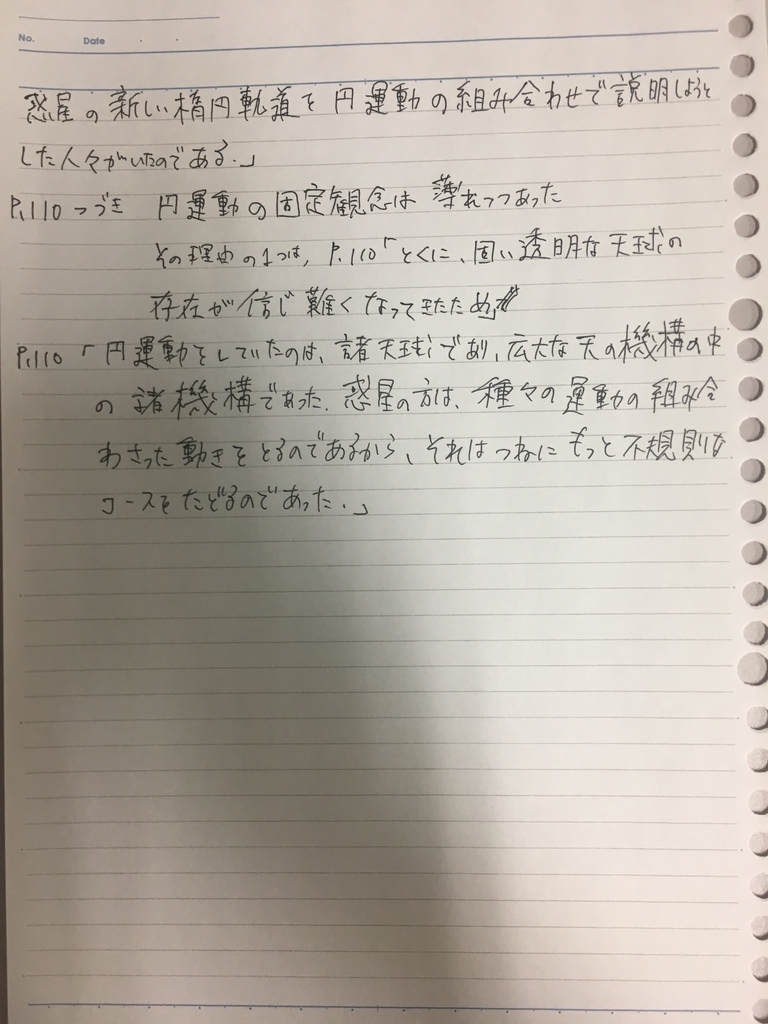 No.
Date
惑星の新しい楕円軌道を円運動の組み合わせで説明しようと
した人々がいたのである.」
P.110 つづき 円運動の固定観念は薄れつつあった
その理由の1つは, P.110「とくに、固い透明な天球の
存在が信じ難くなってきたため」
P.110「円運動をしていたのは、諸天球であり、広大な天の機構の中
の諸機構であった. 惑星の方は、種々の運動の組み合
わさった動きをとるのであるから、それはつねにもっと不規則な
コースをたどるのであった.」